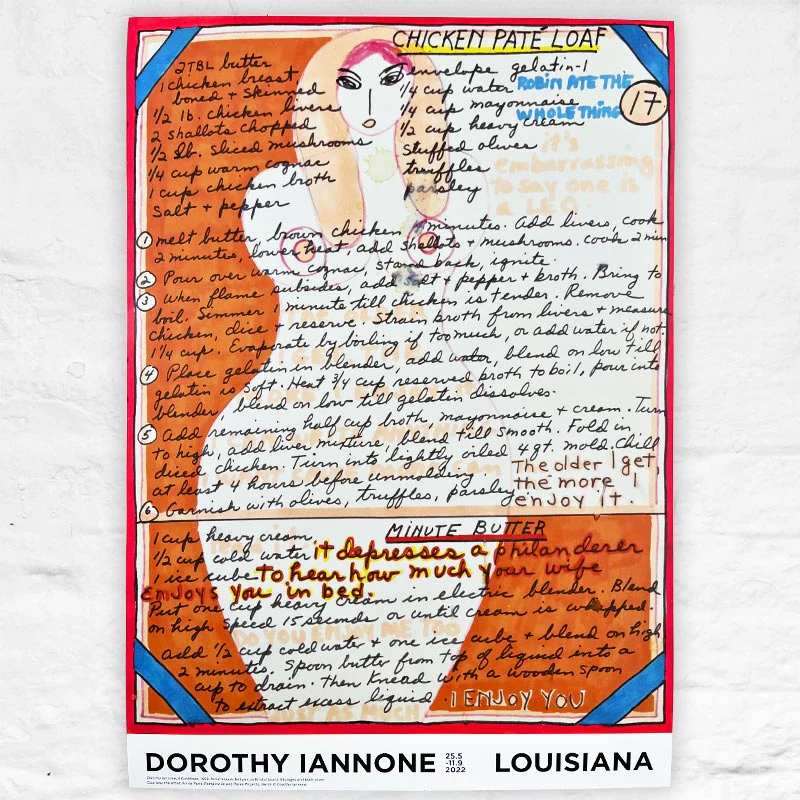 CHICKEN PATÉ LOAF
2 TBL butter
1 chicken breast
boned + skinned
1/2 lb. chicken livers
2 shallots chopped
1/2 lb. sliced mushrooms
1/4 cup warm cognac
1 cup chicken broth
Salt + pepper
envelope gelatin-1
1/4 cup water
1/4 cup mayonnaise
1/2 cup heavy cream
stuffed olives
truffles
parsley
ROBIN ATE THE
WHOLE THING
17
it's
embarrassing
to say one is
a LEO.
1 melt butter brown chicken minutes. Add livers, cook
2 minutes, lower heat, add shallots + mushrooms. cook 2 min
2 Pour over warm cognac, stand back, ignite.
3 When flame subsides, add salt + pepper + broth. Bring to
boil. Simmer minute till chicken is tender. Remove
chicken, dice + reserve. Strain broth from livers + measure
1 1/4 cup. Evaporate by boiling if too much, or add water if not.
4 Place gelatin in blender, add water, blend on low till
gelatin is soft. Heat 3/4 cup reserved broth to boil, pour into
blender, blend on low till gelatin dissolves.
5 Add remaining half cup broth, mayonnaise + cream. Turn
to high, add liver mixture, blend till smooth. Fold in
diced chicken. Turn into lightly oiled 4 qt. mold. Chill
at least 4 hours before unmolding
6 Garnish with olives, truffles, parsley
The older I get,
the more I
enjoy it.
MINUTE BUTTER
1 cup heavy cream
1/2 cup cold water
1 ice cube
it depresses a philanderer
to hear how much your wife
ENJOYS you in bed.
Put one cup heavy cream in electric blender. Blend
on high speed 15 seconds or until cream is whipped.
DO YOU ENJOY ME TOO
Add 1/2 cup cold water + one ice cube + blend on high
2 minutes. Spoon butter from top of liquid into a
cup to drain. Then Knead with a wooden spoon
to extract excess liquid.
I ENJOY YOU
JUST AS MUCH
DOROTHY IANNONE
25.5
-11.9
2022
LOUISIANA